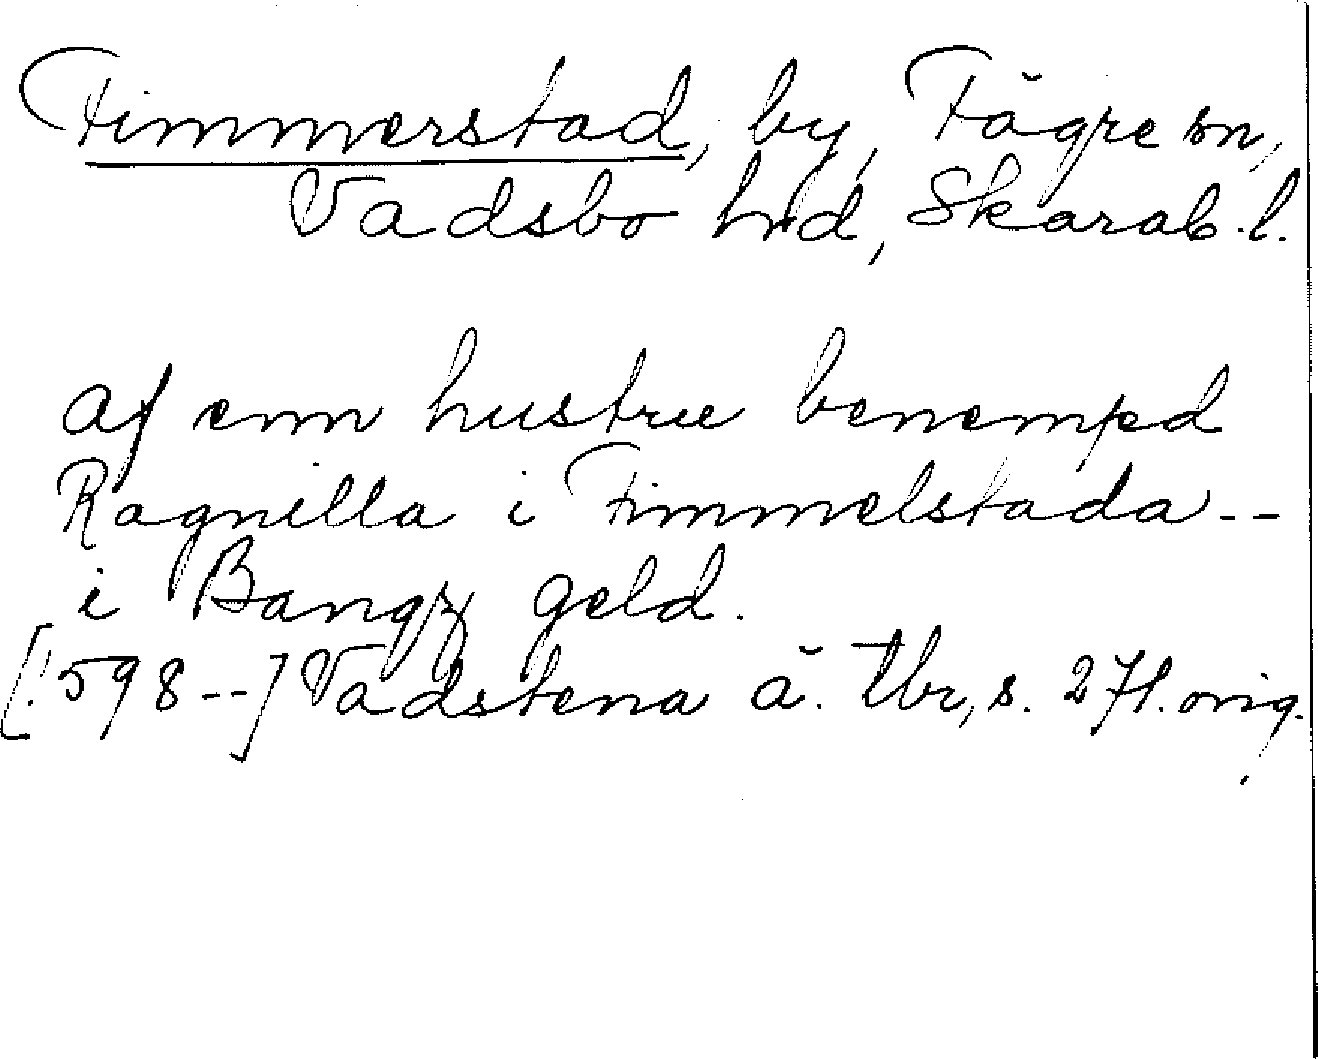 Fimmerstad, by, Fägre sn,
Vadsbo hrd, Skarab. l.
af enn hustru benempd
Ragnilla i Fimmelstada --
i Bangz geld.
[1598--] Vadstena ä. tbr, s. 271. orig.